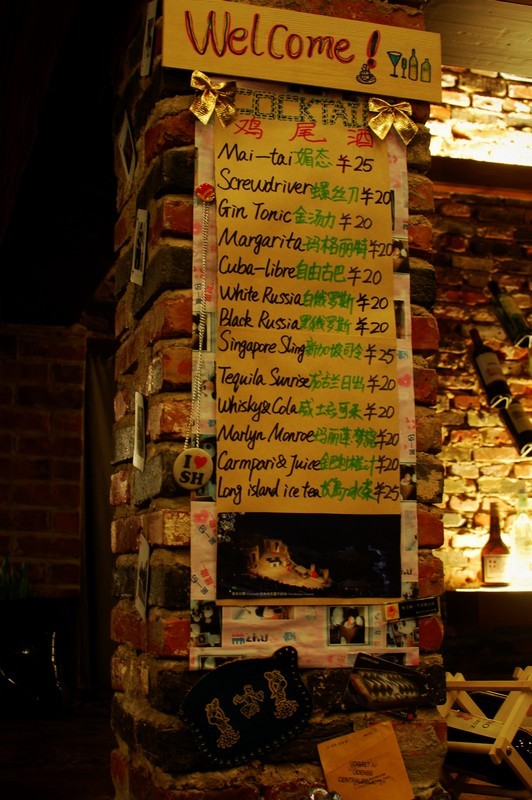 Welcome!
COCKTAIL
鸡尾酒
Mai-tai 媚态 ¥25
Screwdriver 螺丝刀 ¥20
Gin Tonic 金汤力 ¥20
Margarita 玛格丽特 ¥20
Cuba-libre 自由古巴 ¥20
White Russia 白俄罗斯 ¥20
Black Russia 黑俄罗斯 ¥20
Singapore Sling 新加坡司令 ¥25
Tequila Sunrise 龙舌兰日出 ¥20
Whisky&Cola 威士忌可乐 ¥20
Marlyn Monroe 玛丽莲梦露 ¥20
Carmpari & Juice ¥20
Long island ice tea ¥25
I ♥
SH